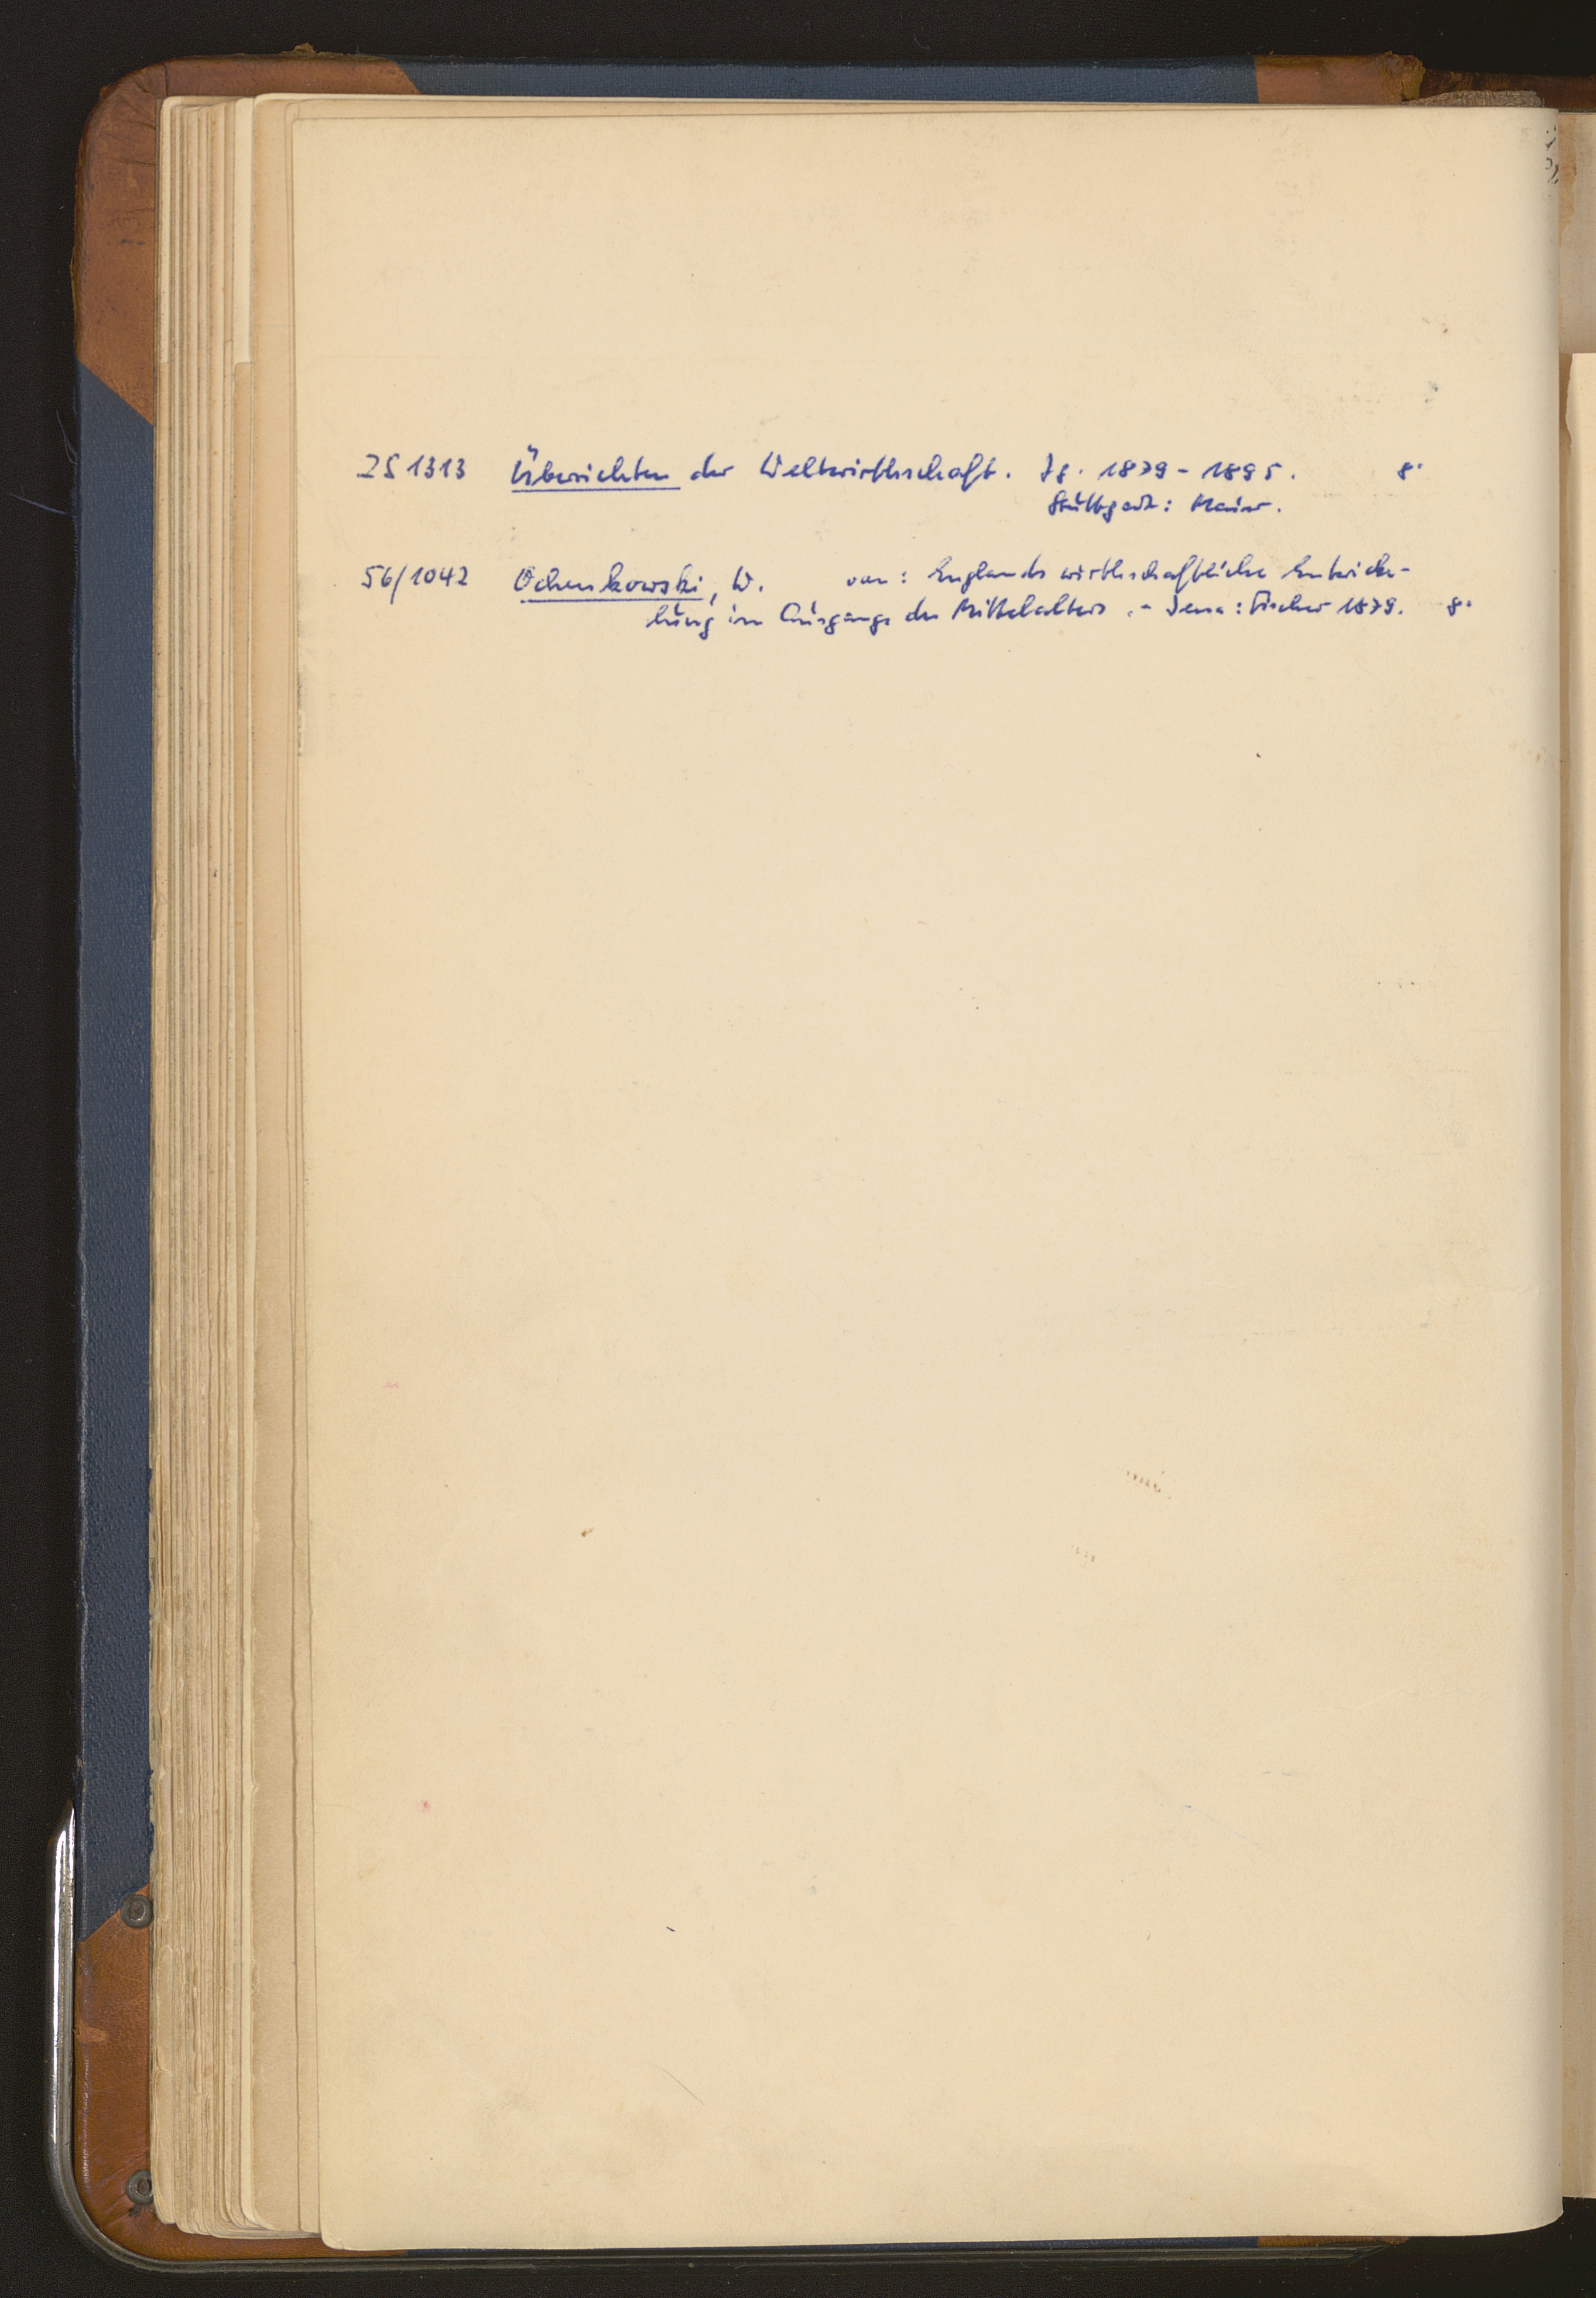 ZS 1313 Übersichten der Weltwirthschaft. Jg. 1879-1895. 8°
Stuttgart: Maier.
56/1042 Ochenkowski, W. von: Englands wirthschaftliche Entwicke-
lung im Ausgange des Mittelalters.- Jena: Fischer 1879. 8°